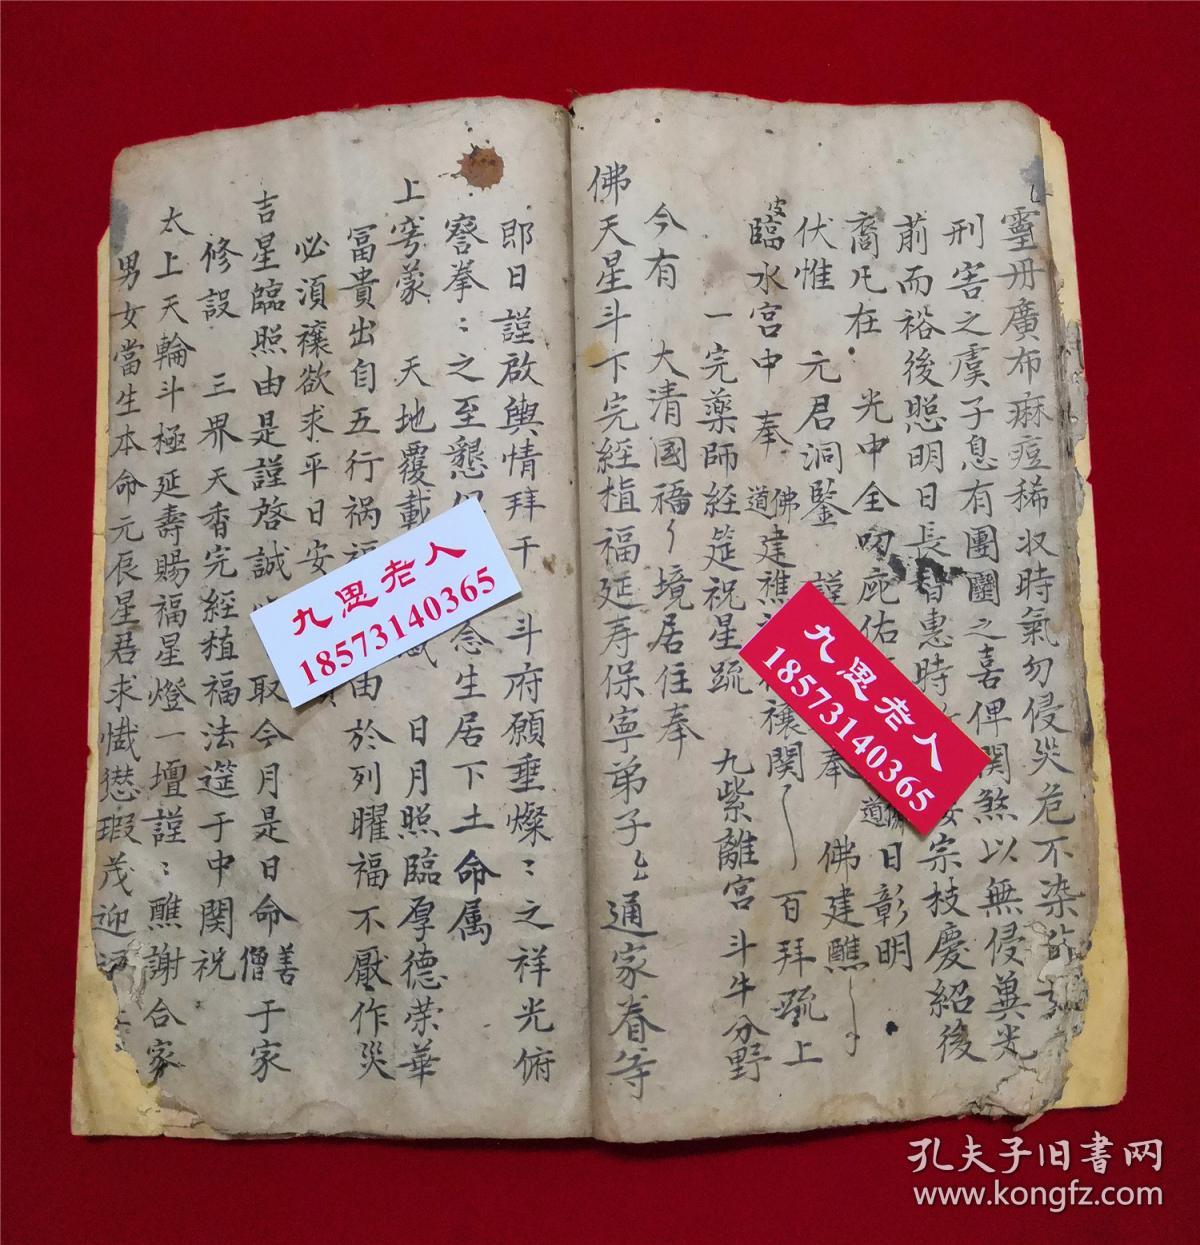 靈丹廣布麻痘稀收時氣勿侵災危不染
刑害之虞子息有團圞之喜俾関煞以無侵冀光
前而裕後照明日長智惠時 宗枝慶紹後
裔凡在 光中全叨庇佑 日彰明
伏惟 元君洞鑒 謹 奉 佛道 佛建醮
皮
臨水宮中 奉 佛道 建醮 禳関 百拜疏上
一完藥師經筵祝星疏 九紫離宮 斗牛分野
今有 大清國福 境居住奉
佛天星斗下完經植福延寿保寧弟子 通家眷等
即日謹啟輿情拜干 斗府願垂燦：之祥光俯
詧拳：之至懇 念生居下土命属
上穹蒙 天地覆載 日月照臨厚德荣華
冨貴出自五行祸福 由於列曜福不厭作災
必須禳欲求平日安
吉星臨照由是謹啓誠 取今月是日命 善僧 于家
修設 三界天香完經植福法筵于中関祝
太上天輪斗極延壽賜福星燈一壇謹：醮謝合家
男女當生本命元辰星君求懺愆瑕茂迎
九思老人
18573140365
九思老人
18573140365
孔夫子旧书网
www.kongfz.com